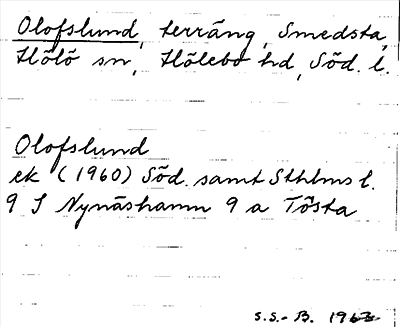 Olofslund, terräng, Smedsta,
Hölö sn, Hölebo hd, Söd. l.
Olofslund
ek (1960) Söd. samt Sthlms l.
9 I Nynäshamn 9 a Tösta
S.S.-B. 1963